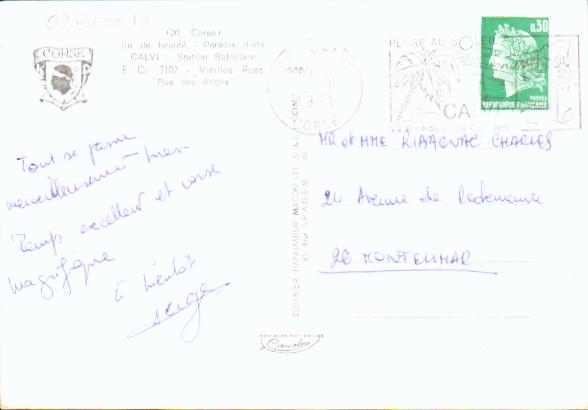 (20. Corse)
Ile de beauté - Paradis d'été
CALVI - Station Balnéaire
E. Ci. 7102 - Vieilles Rues
"Rue des Anges"
CORSE
PLAGE AU SO
CA
CORSE
0,30
POSTES
REPUBLIQUE FRANÇAISE
Tout se passe
merveilleusement bien
Temps excellent et corse
Magnifique
à bientôt
Serge
COMBIER IMPRIMEUR MACON
S.P.A.D.E.M.
MR et MME RIBAGNAC CHARLES
24 Avenue de
26 MONTELIMAR